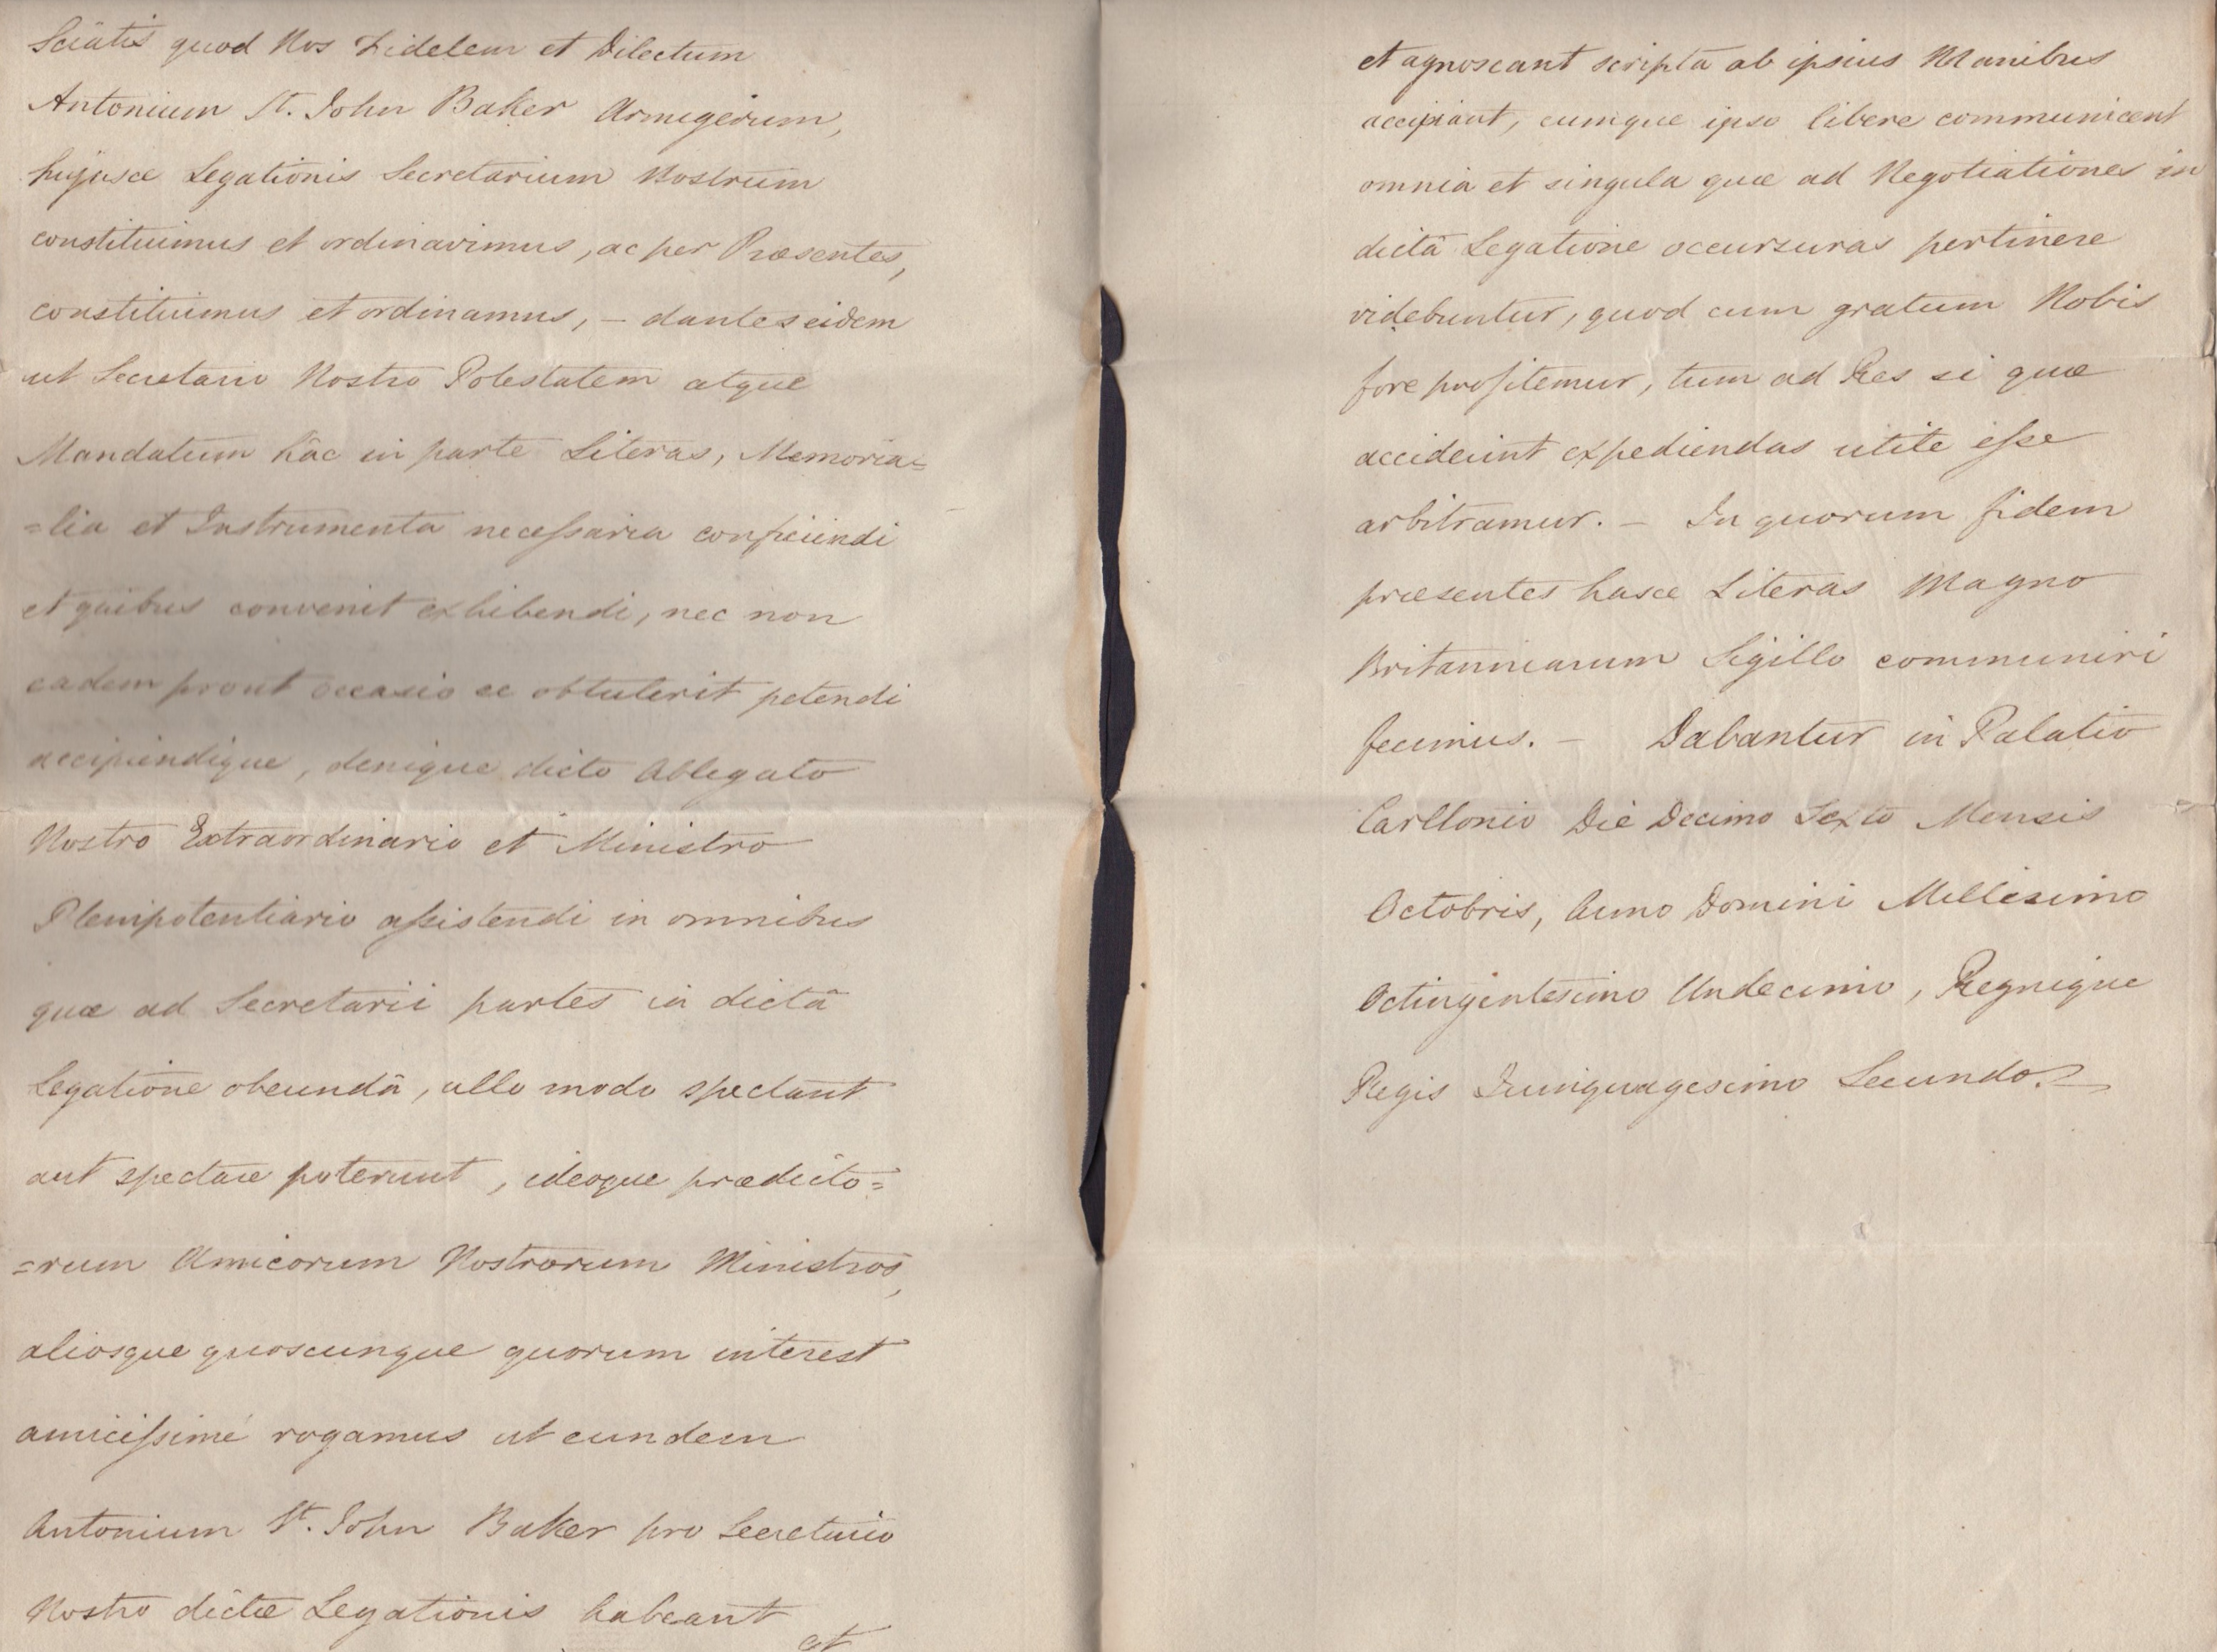 Sciatis quod Nos Fidelem et Dilectum
Antonium St. John Baker Armigerum,
hujusce Legationis Secretarium Nostrum
constituimus et ordinavimus, ac per Præsentes,
constituimus et ordinamus, – dantes eidem
ut Secretario Nostro Potestatem atque
Mandatum hâc in parte Literas, Memoria=
=lia et Instrumenta necessaria conficiendi
et quibus convenit exhibendi, nec non
eadem prout occasio se obtulerit petendi
accipiendique, denique dicto Ablegato
Nostro Extraordinario et Ministro
Plenipotentiario assistendi in omnibus
quæ ad Secretarii partes in dictâ
Legatione obeundâ, ullo modo spectant
aut spectare poterunt, ideoque prædicto=
=rum Amicorum Nostrorum Ministros,
aliosque quoscunque quorum interest
amicissimé rogamus ut eundem
Antonium St. John Baker pro Secretario
Nostro dictæ Legationis habeant
et
et agnoscant scripta ab ipsius Manibus
accipiant, cumque ipso libere communicent
omnia et singula quæ ad Negotiationes in
dictâ Legatione occursuras pertinere
videbuntur, quod cum gratum Nobis
fore profitemur, tum ad Res si quæ
acciderint expediendas utile esse
arbitramur. – In quorum fidem
præsentes hasce Literas Magno
Britanniarum Sigillo communiri
fecimus. – Dabantur in Palatio
Carltonio Die Decimo Sexto Mensis
Octobris, Anno Domini Millesimo
Octingentesimo Undecimo, Regnique
Regis Quinquagesimo Secundo. –